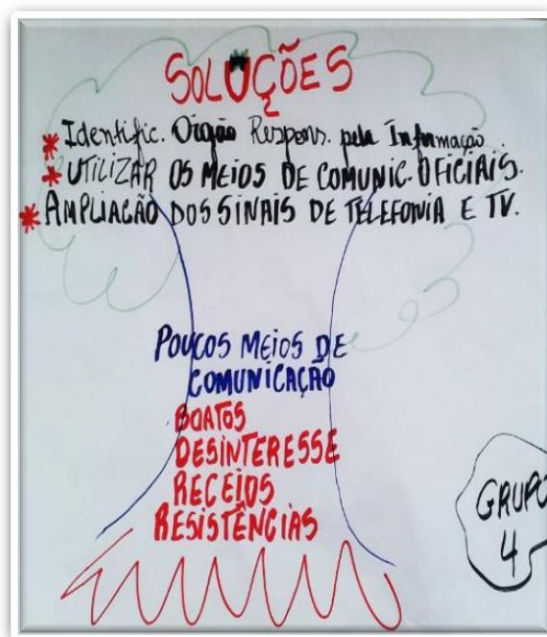 SOLUÇÕES
* Identific. Órgão Respons. pela Informação.
* UTILIZAR OS MEIOS DE COMUNIC. OFICIAIS.
* AMPLIAÇÃO DOS SINAIS DE TELEFONIA E TV.
POUCOS MEIOS DE
COMUNICAÇÃO
BOATOS
DESINTERESSE
RECEIOS
RESISTÊNCIAS
GRUPO
4